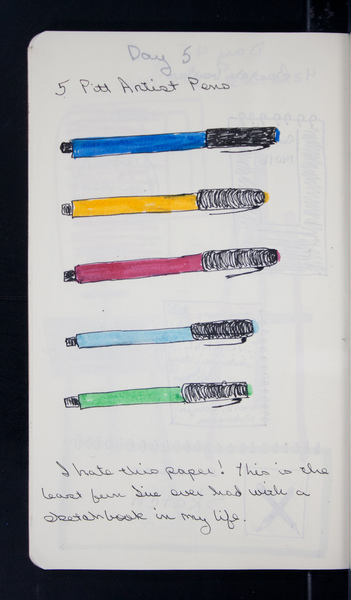 Day 5
5 Pitt Artist Pens
I hate this paper! This is the
least fun I've ever had with a
sketchbook in my life.